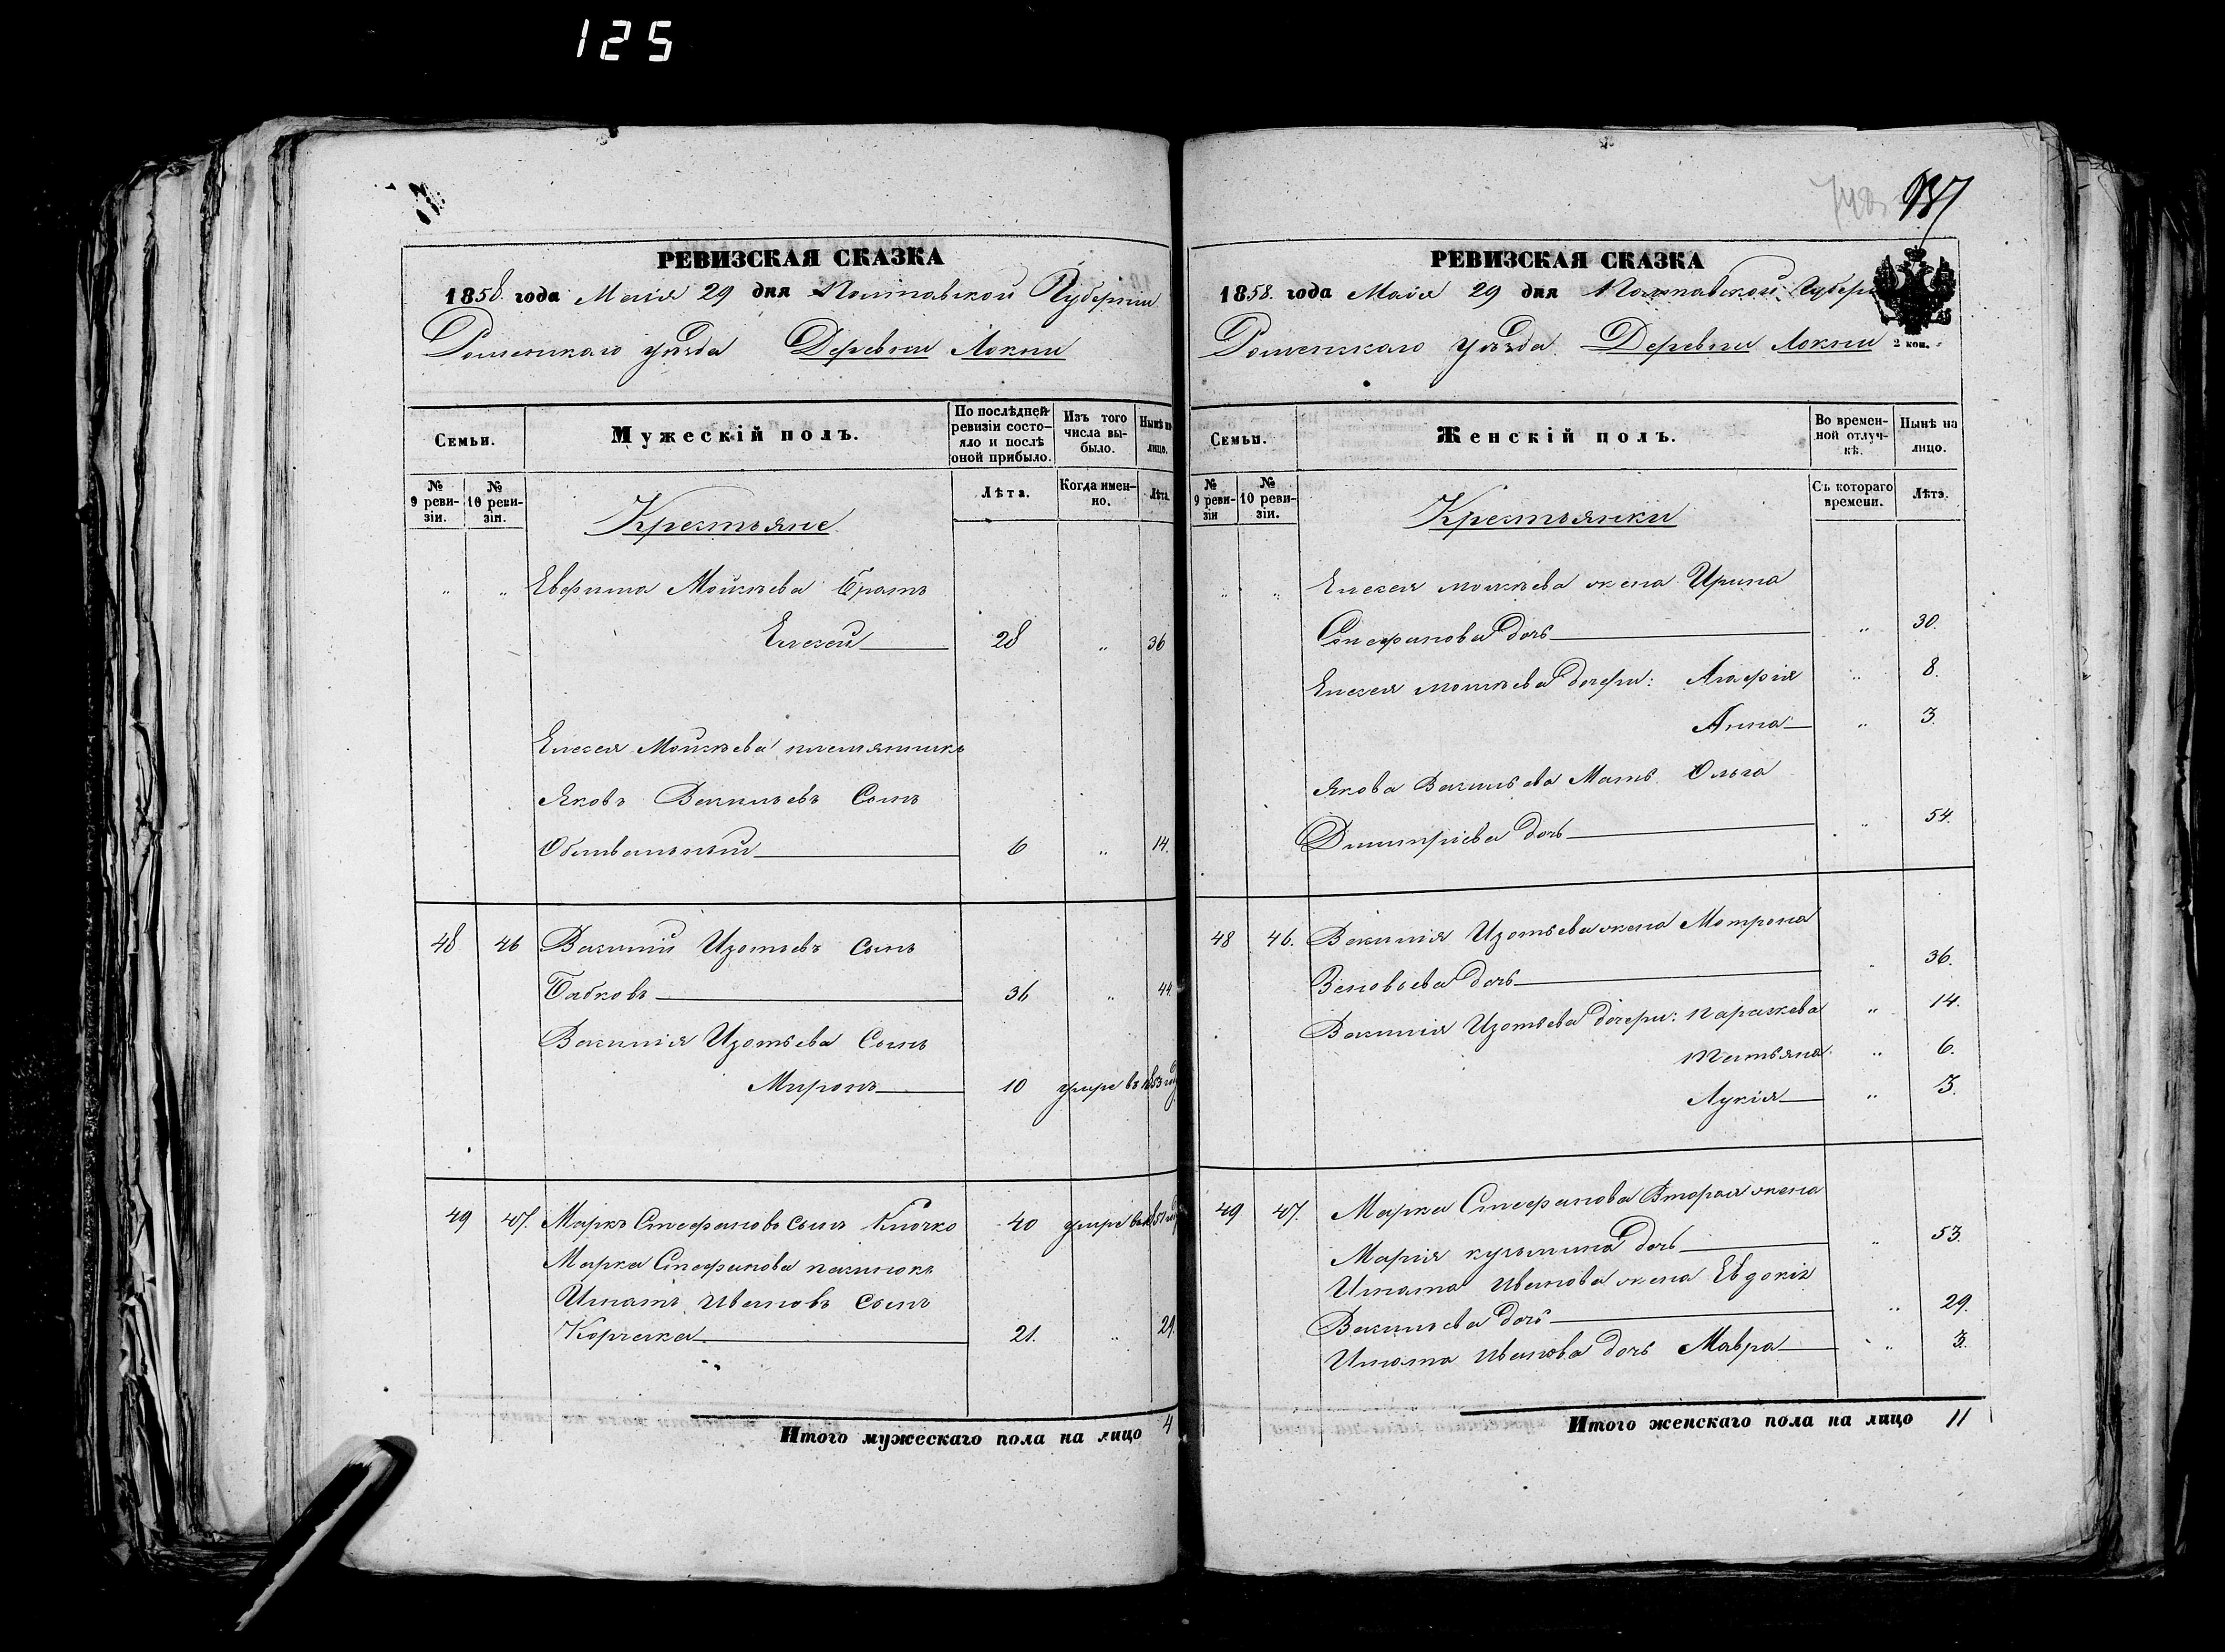 125
РЕВИЗСКАЯ СКАЗКА
1858. года Маія 29 дня Полтавской Губерніи
Роменскаго уѣзда Деревни Локни
Семьи.
Мужескій полъ.
По послѣдней ревизіи состояло и послѣ оной прибыло.
Изъ того числа выбыло.
Нынѣ на лицо.
№ 9 ревизіи.
№ 10 ревизіи.
Крестьяне
Лѣта.
Когда именно.
Лѣта.
" " Евфима Мойсѣева братъ
Елисей 28 " 36
Елисея Мойсѣева племянникъ
Яковъ Васильевъ Сынъ
6 " 14.
48 46 Василій Изотьевъ Сынъ
Бабковъ 36 " 44.
Василія Изотьева Сынъ
Миронъ 10 умре въ 1853 году
49 47. Маркъ Стефановъ сынъ Клочко 40 умре въ 1851 году
Марка Стефанова пасынокъ
Игнатъ Ивановъ сынъ
21. " 29.
Итого мужескаго пола на лицо 4
737
РЕВИЗСКАЯ СКАЗКА
1858. года Маія 29 дня Полтавской Губерн
Роменскаго уѣзда. Деревни Локни
2 коп.
Семьи.
Женскій полъ.
Во временной отлучкѣ.
Нынѣ на лицо.
№ 9 ревизіи
№ 10 ревизіи.
Крестьянки
Съ котораго времени.
Лѣта.
" " Елисея Мойсѣева жена Ирина
Стефанова дочь " 30.
Елисея Мойсѣева дочери: Агафія " 8.
Анна " 3.
Якова Васильева Мать Ольга
Димитріева дочь " 54.
48 46. Василія Изотьева жена Мотрона
Зеновьева дочь " 36.
Василія Изотьева дочери: Параскева " 14.
Татьяна " 6.
Лукія " 3.
49 47. Марка Стефанова Вторая жена
Марія Кузьмина дочь " 53.
Игната Иванова жена Евдокія
Васильева дочь " 29.
Игната Иванова дочь Мавра " 3.
Итого женскаго пола на лицо 11